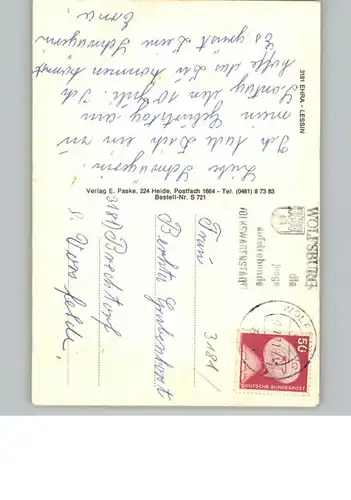 3181 EHRA - LESSIN
Liebe Schwägerin.
Ich lade Dich ein zu
mein Geburtstag am
Sonntag den 10 April. Ich
hoffe das Du kommen kannst
Es grüsst Dein Schwägerin
Erna.
Verlag E. Paske, 224 Heide, Postfach 1664 - Tel. (0481) 8 73 83
Bestell-Nr. S 721
WOLFSBURG
die
junge
aufstrebende
VOLKSWAGENSTADT
WOLFSBURG
50
DEUTSCHE BUNDESPOST
Frau
Bertha
3181 Brechtorf
ü. Vorsfelde.
3181